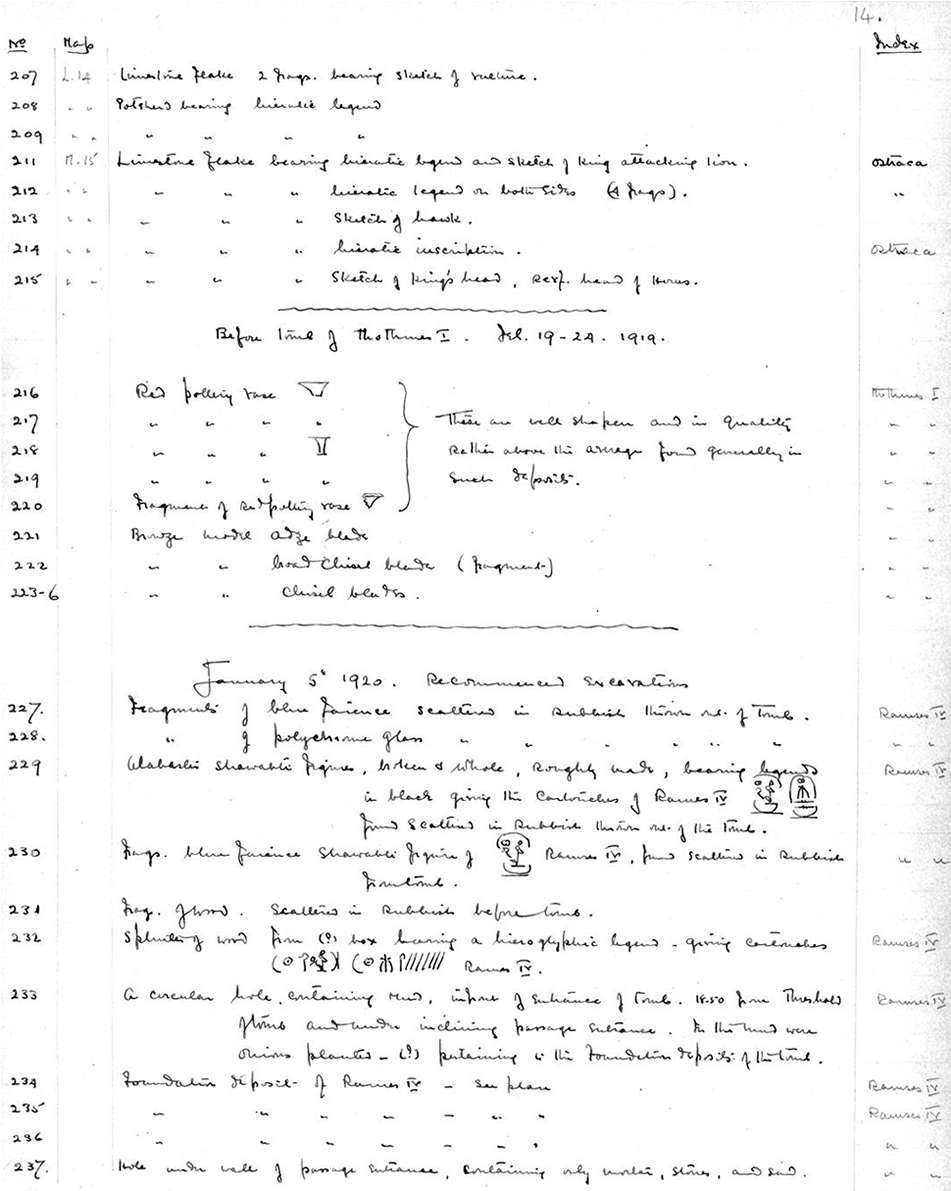 14.
No Map Index
207 L.14 Limestone flake 2 frags. bearing sketch of vulture.
208 " " Potsherd bearing hieratic legend
209 " " " " " "
211 M.15 Limestone flake bearing hieratic legend and sketch of King attacking lion. Ostraca
212 " " " " " hieratic legend on both sides (4 frags). "
213 " " " " " Sketch of hawk.
214 " " " " " hieratic inscription. Ostraca
215 " " " " " Sketch of King's head, head of Horus.
Before Tomb of Thothmes I. Feb. 19-24. 1919.
216 Red pottery vase Thothmes I
217 " " " " These are well shapen and in quality " "
218 " " " rather above the average found generally in " "
219 " " " " such deposits. " "
220 Fragment of red pottery vase " "
221 Bronze model adze blade " "
222 " " broad chisel blade (fragment) " "
223-6 " " Chisel blades. " "
January 5th 1920. Recommenced Excavations
227. Fragments of blue faience scattered in rubbish thrown out of Tomb. Ramses IV
228. " of polychrome glass " " " " " " "
229 Alabaster shawabti figures, broken & whole, roughly made, bearing legends Ramses IV
in black giving the cartouches of Ramses IV
found scattered in rubbish thrown out of the Tomb.
230 Frags. blue faience Shawabti figure of Ramses IV, found scattered in rubbish " "
from tomb.
231 Frag. of wood. Scattered in rubbish before tomb.
232 Splinter of wood from (?) box bearing a hieroglyphic legend - giving cartouches Ramses IV
Ramses IV.
233 A circular hole, containing mud, in front of entrance of tomb. 18.50 from threshold Ramses IV
of tomb and under inclining passage entrance. In the mud were
onions planted - (?) pertaining to the foundation deposits of the tomb.
234 Foundation deposit of Ramses IV - See plan Ramses IV
235 " " " " - " " Ramses IV
236 " " " " - " " " "
237. Hole under wall of passage entrance, containing only mortar, stones, and sand. " "